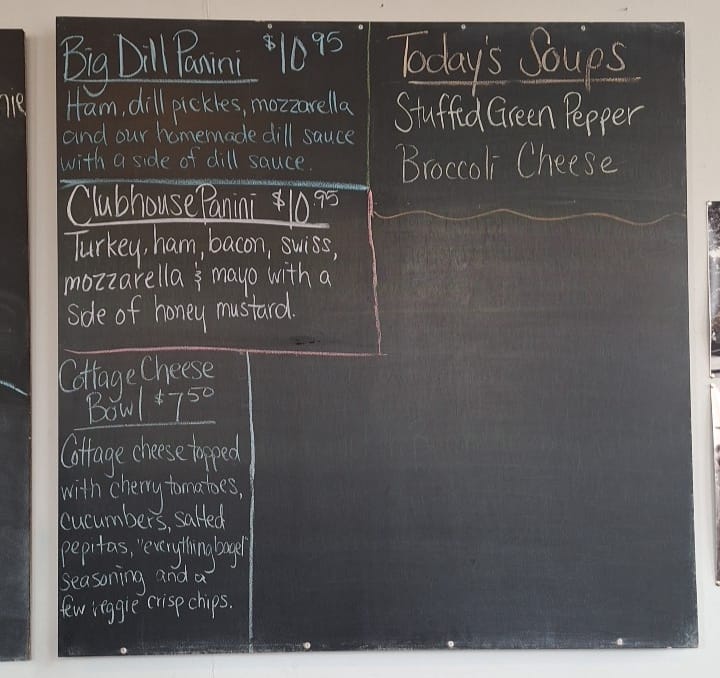 Big Dill Panini $10.95
Ham, dill pickles, mozzarella
and our homemade dill sauce
with a side of dill sauce.
Clubhouse Panini $10.95
Turkey, ham, bacon, swiss,
mozzarella & mayo with a
side of honey mustard.
Cottage Cheese
Bowl $7.50
Cottage cheese topped
with cherry tomatoes,
cucumbers, salted
pepitas, "everything bagel"
seasoning and a
few veggie crisp chips.
Today's Soups
Stuffed Green Pepper
Broccoli Cheese